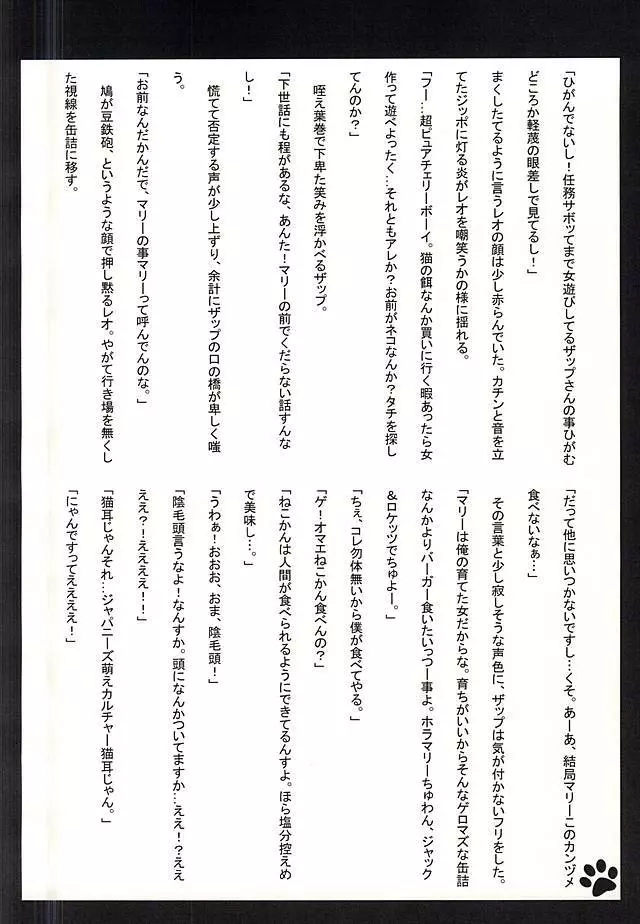 「ひがんでないし！任務サボッてまで女遊びしてるザップさんの事ひがむ
どころか軽蔑の眼差しで見てるし！」
まくしたてるように言うレオの顔は少し赤らんでいた。カチンと音を立
てたジッポに灯る炎がレオを嘲笑うかの様に揺れる。
「フー…超ピュアチェリーボーイ。猫の餌なんか買いに行く暇あったら女
作って遊べよったく…それともアレか？お前がネコなんか？タチを探し
てんのか？」
咥え葉巻で下卑た笑みを浮かべるザップ。
「下世話にも程があるな、あんた！マリーの前でくだらない話すんな
し！」
慌てて否定する声が少し上ずり、余計にザップの口の橋が卑しく嗤
う。
「お前なんだかんだで、マリーの事マリーって呼んでんのな。」
鳩が豆鉄砲、というような顔で押し黙るレオ。やがて行き場を無くし
た視線を缶詰に移す。
「だって他に思いつかないですし…くそ。あーあ、結局マリーこのカンヅメ
食べないなぁ…」
その言葉と少し寂しそうな声色に、ザップは気が付かないフリをした。
「マリーは俺の育てた女だからな。育ちがいいからそんなゲロマズな缶詰
なんかよりバーガー食いたいっつー事よ。ホラマリーちゅわん、ジャック
＆ロケッツでちゅよー。」
「ちぇ、コレ勿体無いから僕が食べてやる。」
「ゲ！オマエねこかん食べんの？」
「ねこかんは人間が食べられるようにできてるんすよ。ほら塩分控えめ
で美味し…。」
「うわぁ！おおお、おま、陰毛頭！」
「陰毛頭言うなよ！なんすか。頭になんかついてますか…ええ！？ええ
ええ？！ええええ！！」
「猫耳じゃんそれ…ジャパニーズ萌えカルチャー猫耳じゃん。」
「にゃんですってえええ！」